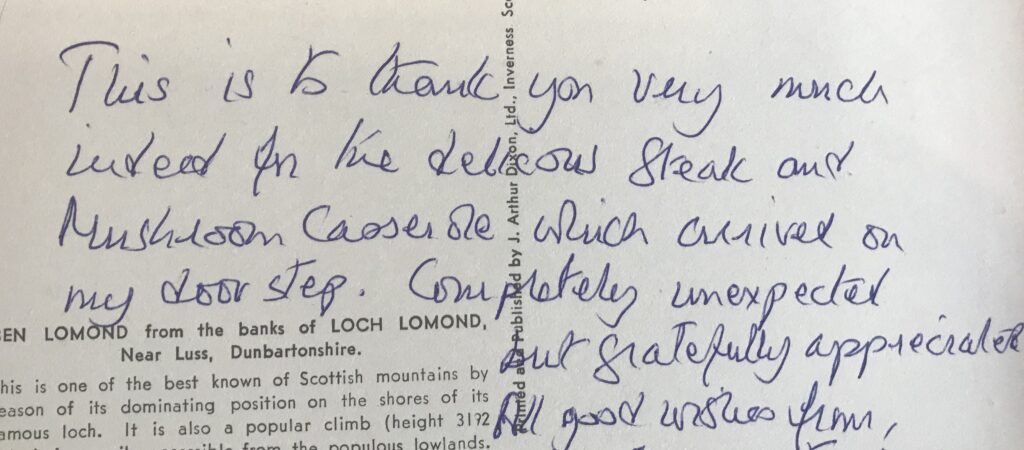 This is to thank you very much
indeed for the delicious steak and
Mushroom Casserole which arrived on
my door step. Completely unexpected
but gratefully appreciated
All good wishes from,
BEN LOMOND from the banks of LOCH LOMOND,
Near Luss, Dunbartonshire.
his is one of the best known of Scottish mountains by
eason of its dominating position on the shores of its
amous loch. It is also a popular climb (height 3192
from the populous lowlands.
Printed and Published by J. Arthur Dixon, Ltd., Inverness Sc